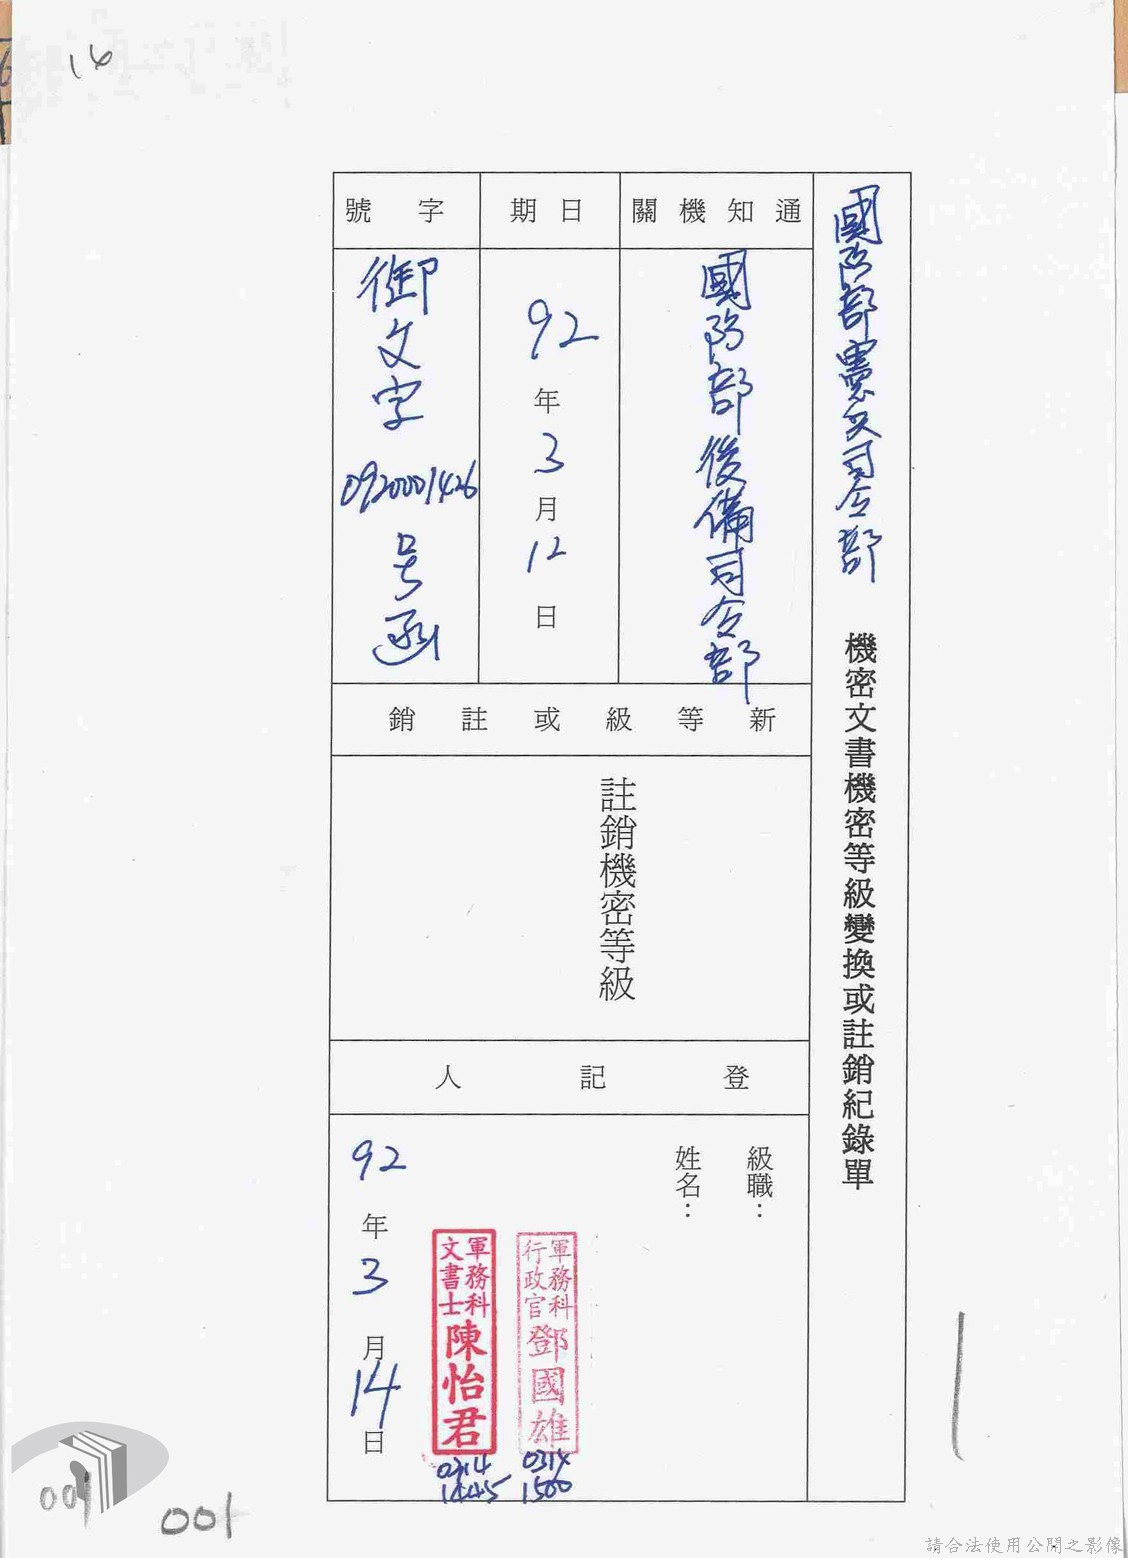 16
國防部憲兵司令部 機密文書機密等級變換或註銷紀錄單
通知機關
國防部後備司令部
日期
92年3月12日
字號
御文字
0920001426
号函
新等級或註銷
註銷機密等級
登記人
級職：
姓名：
軍務科
行政官
鄧國雄
0314
1500
軍務科
文書士
陳怡君
0314
1445
92年3月14日
001
001
請合法使用公開之影像